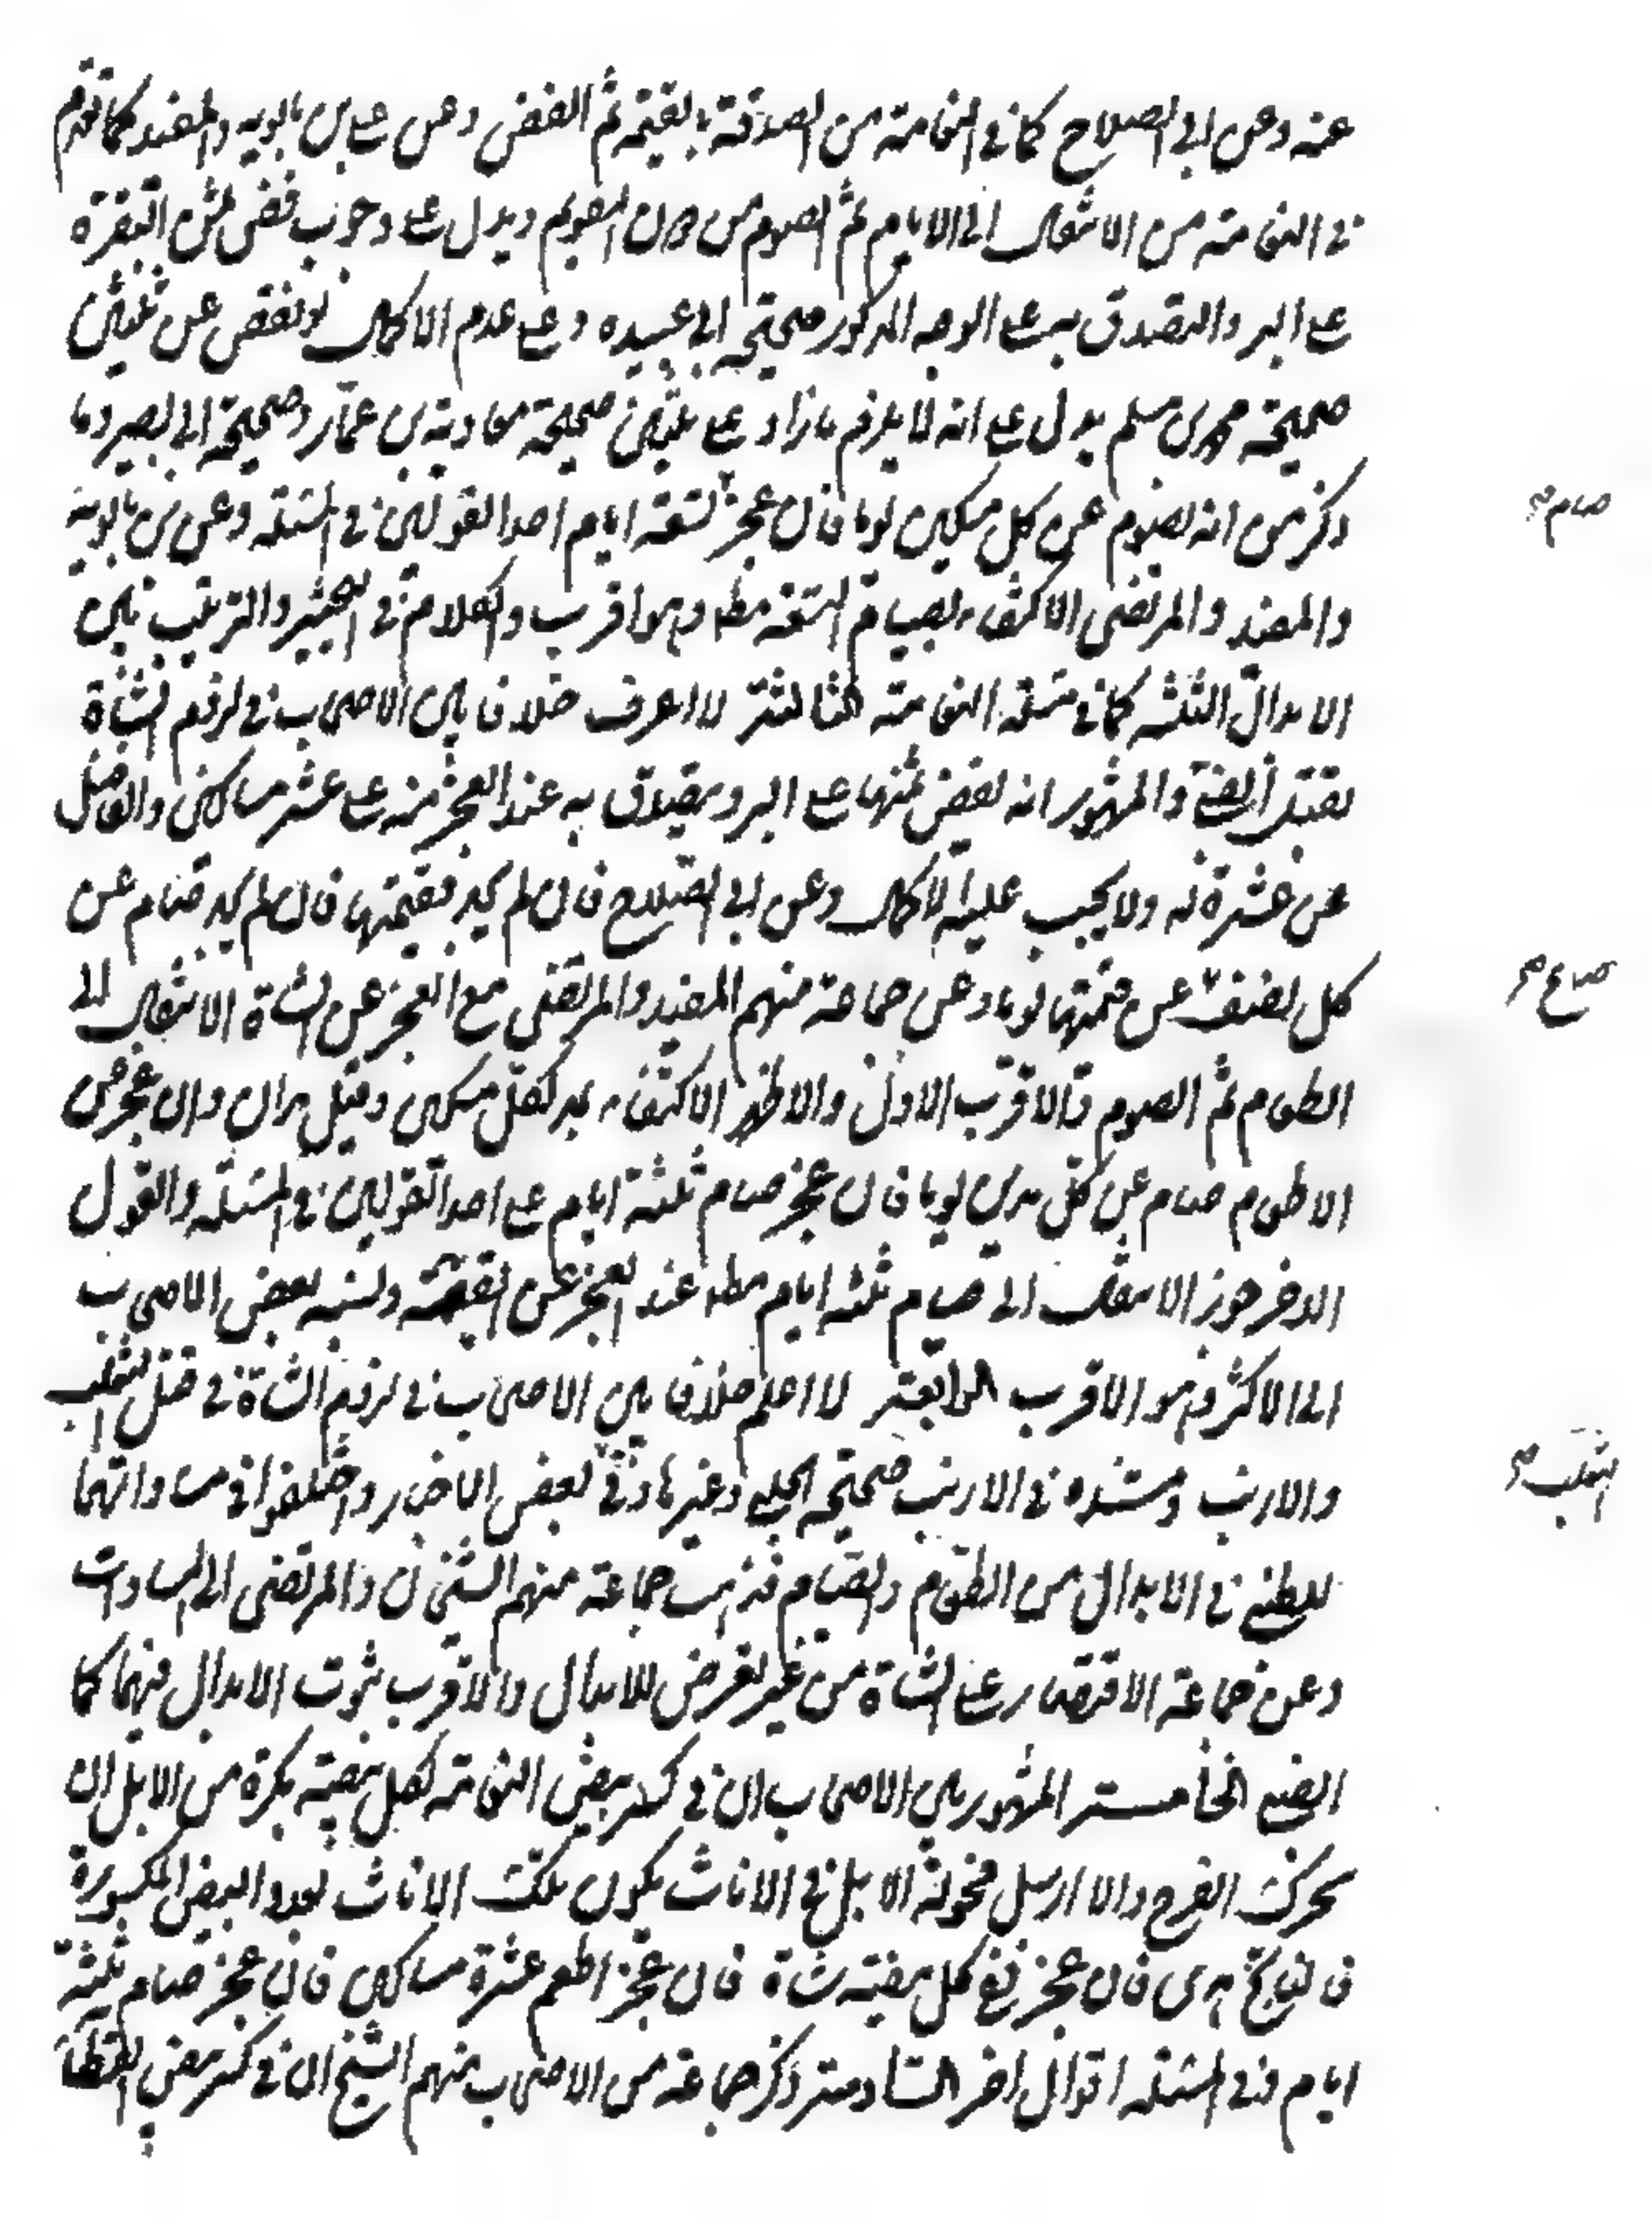 عنه وعن ابي الصلاح كما في النعامة من الصدقة بالقيمة ثم الفض وعن علي بن بابويه والمفيد كما تقدم
في النعامة من الانتقال الى الاطعام ثم الصوم من دون التقويم ويدل على وجوب فض ثمن البقرة
على البر والتصدق به على الوجه المذكور صحيحة ابي عبيدة وعلى عدم الاكمال لو نقص عن ثلثين
صحيحة محمد بن مسلم يدل على انه لا يلزم ما زاد على ثلثين صحيحة معاوية بن عمار وصحيحة ابي بصير وما
ذكر من انه يصوم عن كل مسكين يوما فان عجز تسعة ايام احد القولين في المسئلة وعن بن بابويه
صام صح
والمفيد والمرتضى الاكتفاء بصيام التسعة مطلقا وهو اقرب والكلام في التخيير والترتيب بين
الابدال الثلثة كما في مسئلة النعامة الثالثة لا اعرف خلافا بين الاصحاب في لزوم الشاة
بقتل الظبي والمشهور انه يفض ثمنها على البر ويتصدق به عند العجز منه على عشر مساكين والفاضل
عن عشرة له ولا يجب عليه الاكمال وعن ابي الصلاح فان لم يجد فقيمتها فان لم يجد صام عن
كل نصف عن قيمتها يوما وعن جماعة منهم المفيد والمرتضى مع العجز عن الشاة الانتقال الى
صاع صح
الطعام ثم الصوم والاقرب الاول والاظهر الاكتفاء بمد لكل مسكين وقيل مدان وان عجز عن
الاطعام صام عن كل مدين يوما فان عجز صام ثلثة ايام على احد القولين في المسئلة والقول
الاخر جواز الانتقال الى صيام ثلثة ايام مطلقا عند العجز عن القيمة ونسبه بعض الاصحاب
الى الاكثر وهو الاقرب الرابعة لا اعلم خلافا بين الاصحاب في لزوم الشاة في قتل الثعلب
والارنب ومستنده في الارنب صحيحة الحلبي وغيرها وفي بعض الاخبار واختلفوا في مساواتهما
الثعلب صح
للظبي في الابدال من الطعام والصيام فذهب جماعة منهم الشيخان والمرتضى الى المساوات
وعن جماعة الاقتصار على الشاة من غير تعرض للابدال والاقرب ثبوت الابدال فيهما كما
الظبي الخامسة المشهور بين الاصحاب ان في كسر بيض النعامة لكل بيضة بكرة من الابل ان
تحرك الفرخ والا ارسل فحولة الابل في الاناث يكون تلك الاناث بعدد البيض المكسورة
فالناتج هدى فان عجز فعن كل بيضة شاة فان عجز اطعم عشرة مساكين فان عجز صام ثلثة
ايام وفي المسئلة اقوال اخر السادسة ذكر جماعة من الاصحاب منهم الشيخ ان في كسر بيض القطاة